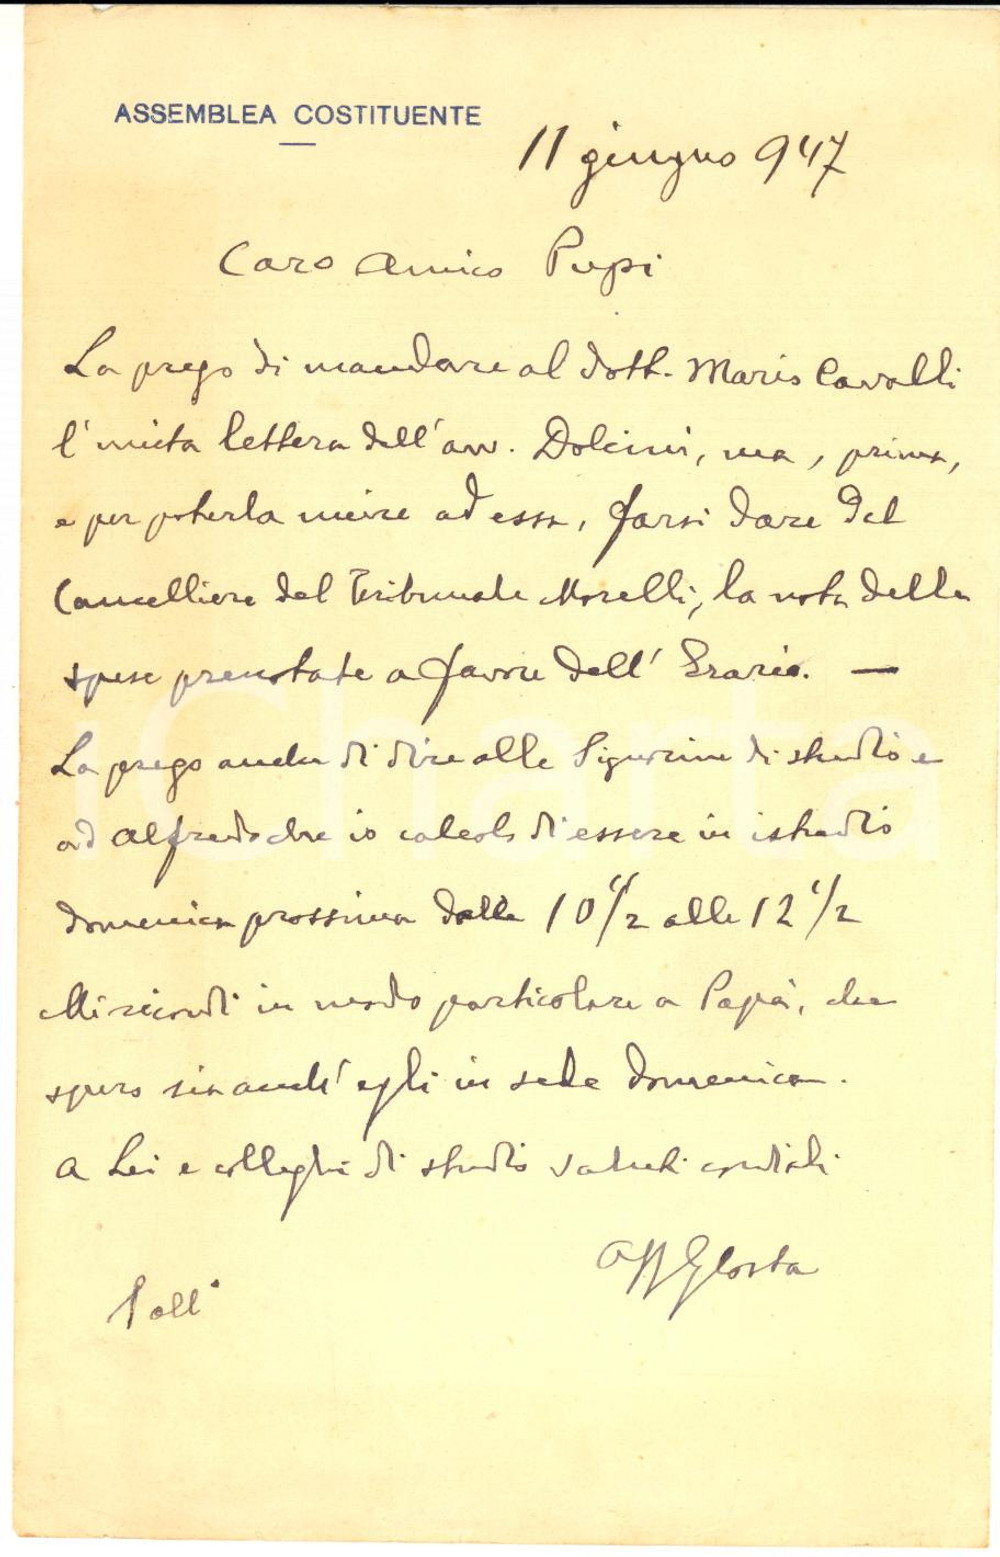 ASSEMBLEA COSTITUENTE
11 giugno 947
Caro Amico Pupi
La prego di mandare al dott. Mario Cavalli
l'unita lettera dell'avv. Dolcini, ma, prima,
e per poterla unire ad essa, farsi dare dal
Cancelliere del Tribunale Morelli, la nota delle
spese prenotate a favore dell'Erario. —
La prego anche di dire alle Signorine di studio e
ad Alfredo che io calcolo di essere in istudio
domenica prossima dalle 10 1/2 alle 12 1/2
Mi ricordi in modo particolare a Papà, che
spero sia anch'egli in sede domenica.
A Lei e colleghi di studio saluti cordiali
Aff
1 all°
iCharta